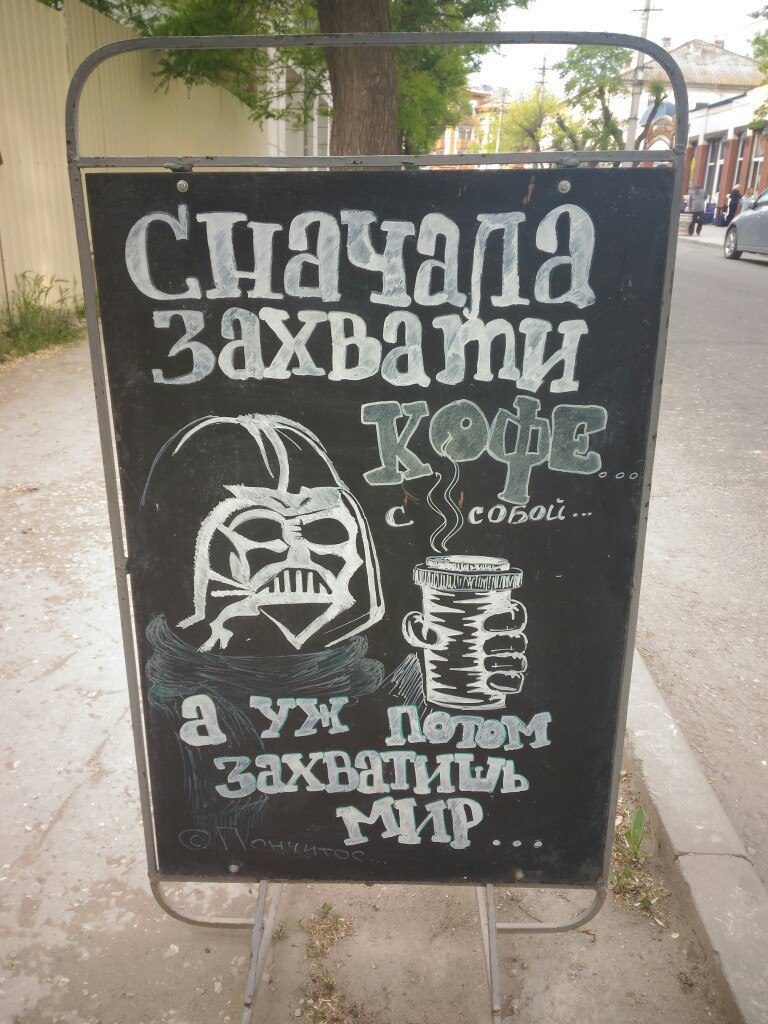 Сначала
захвати
кофе...
с собой...
а уж потом
захватишь
мир...
© Пончитос